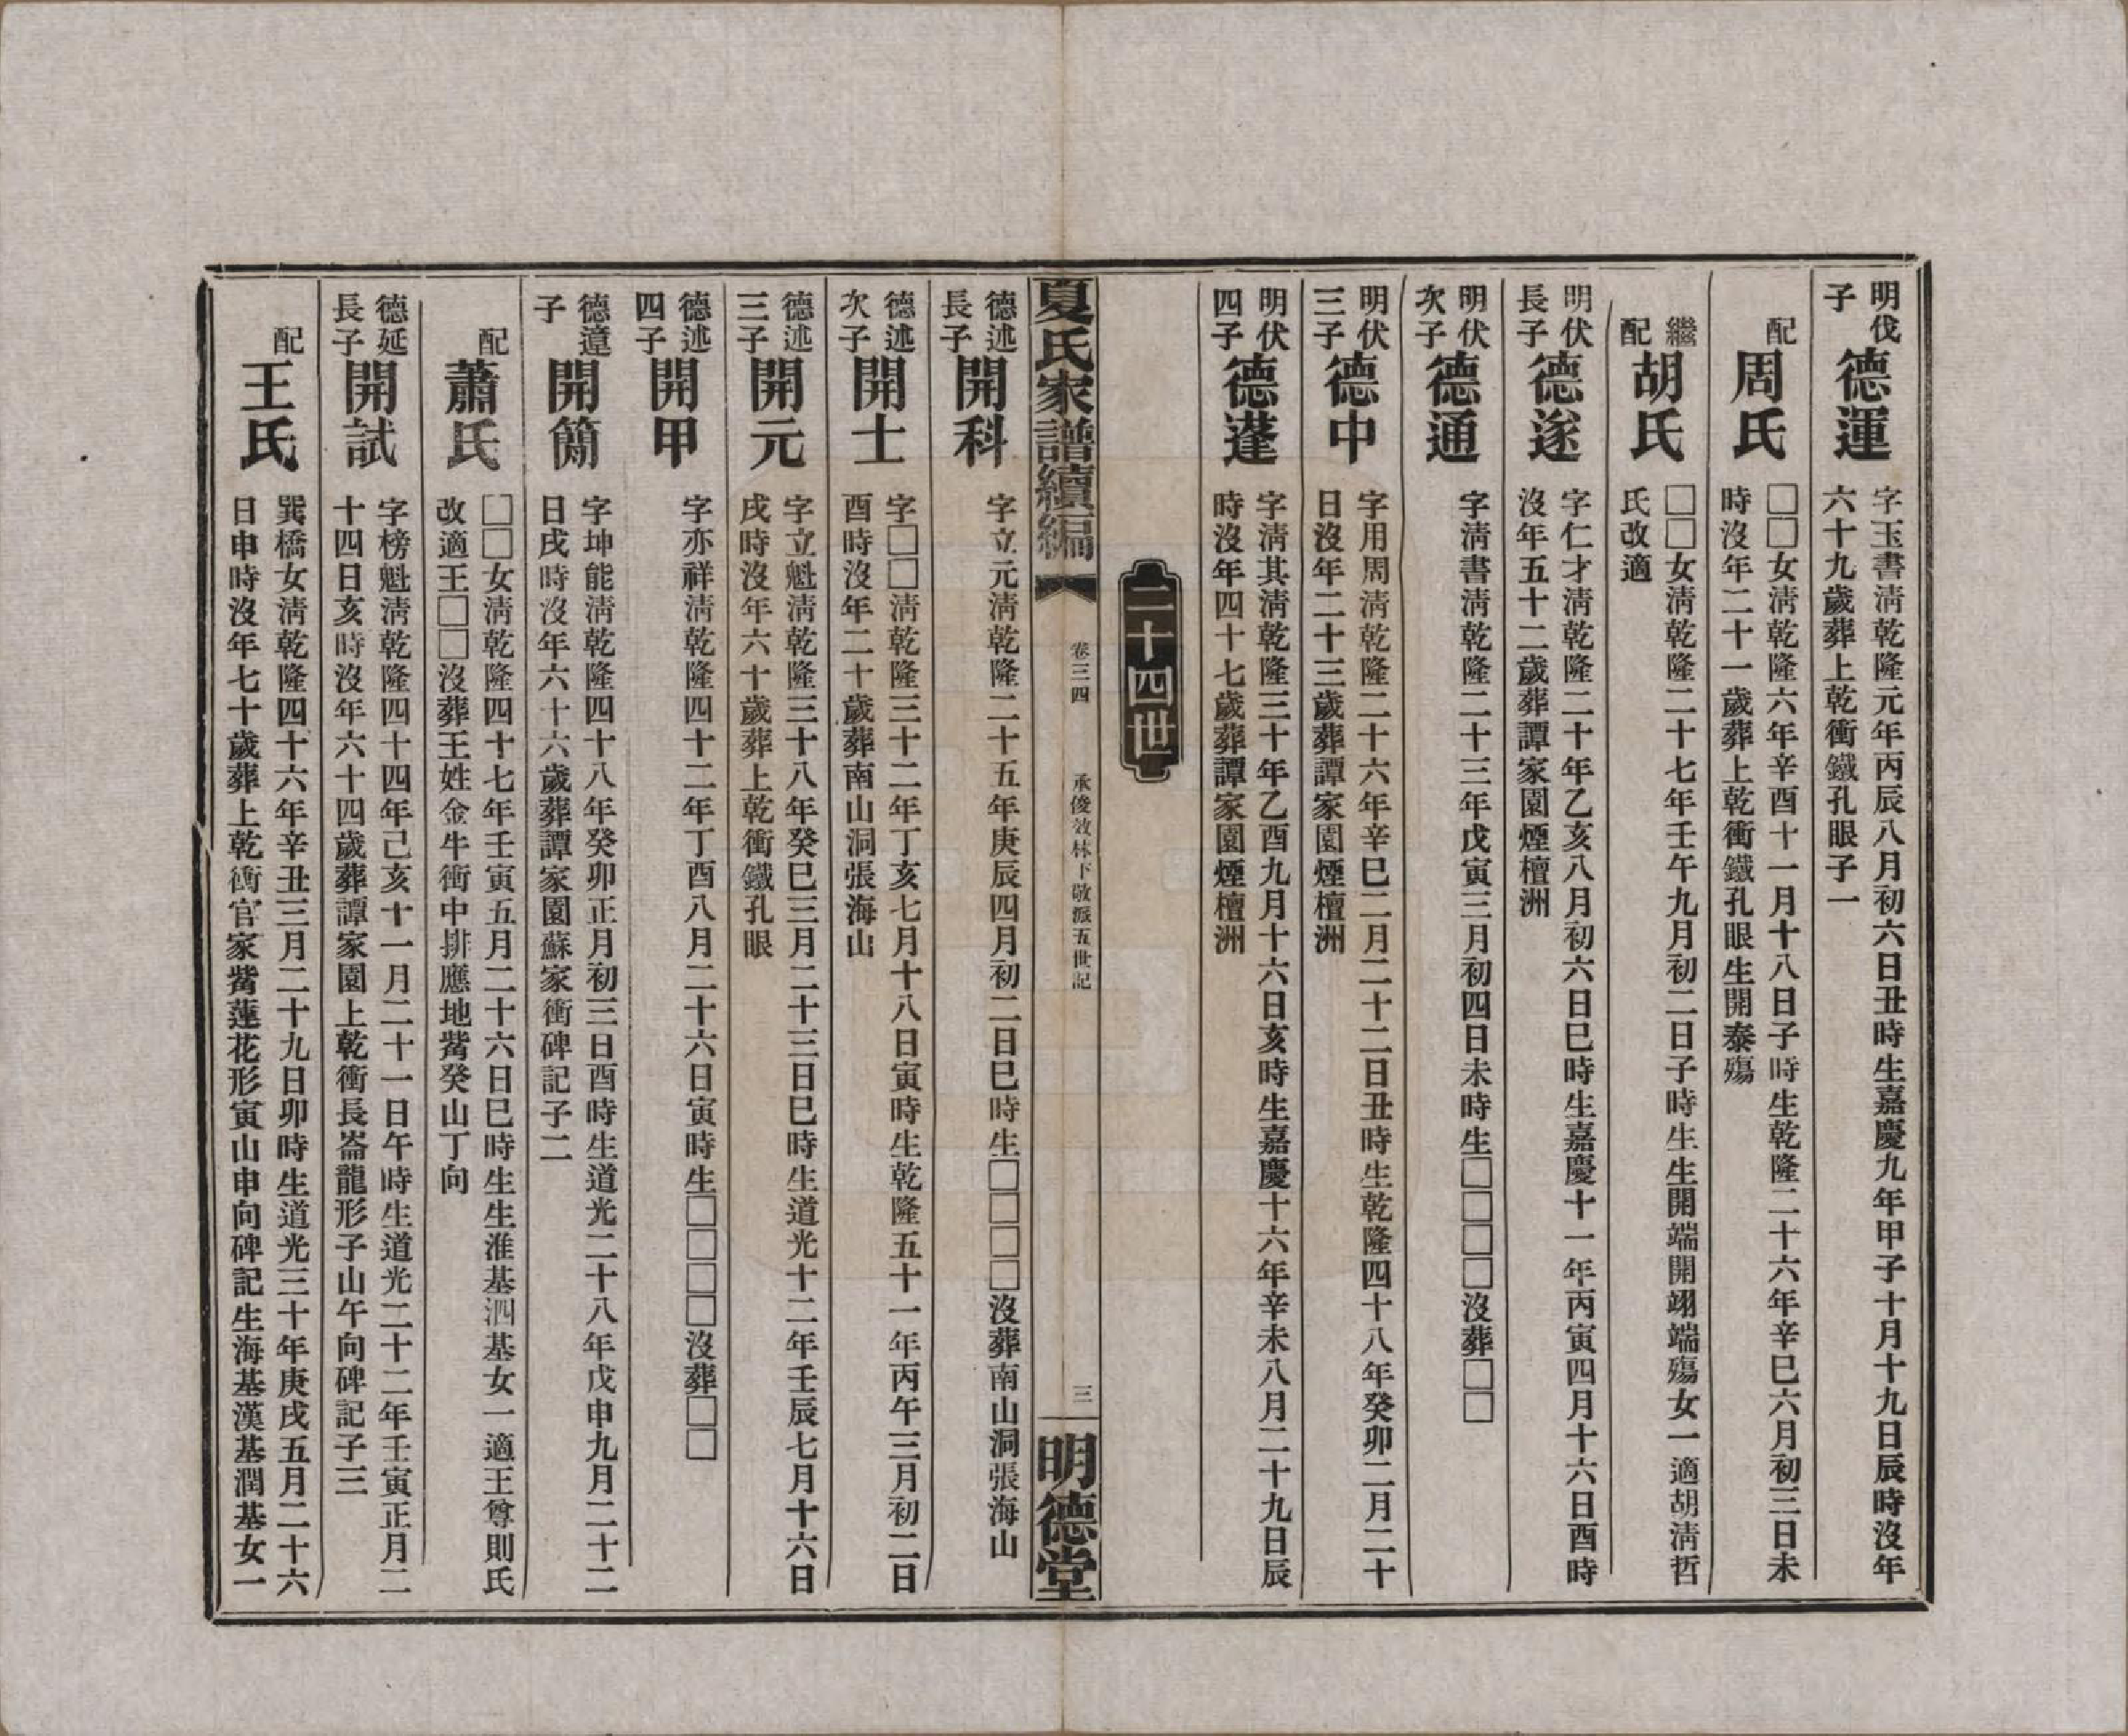 明伐
子
德運
字玉書淸乾隆元年丙辰八月初六日丑時生嘉慶九年甲子十月十九日辰時沒年
六十九歲葬上乾衝鐵孔眼子一
配
周氏
□□女淸乾隆六年辛酉十一月十八日子時生乾隆二十六年辛巳六月初三日未
時沒年二十一歲葬上乾衝鐵孔眼生開泰殤
繼
配
胡氏
□□女淸乾隆二十七年壬午九月初二日子時生生開端開翊端殤女一適胡淸哲
氏改適
明伏
長子
德遂
字仁才淸乾隆二十年乙亥八月初六日巳時生嘉慶十一年丙寅四月十六日酉時
沒年五十二歲葬譚家園煙檀洲
明伏
次子
德通
字淸書淸乾隆二十三年戊寅三月初四日未時生□□□□沒葬□□
明伏
三子
德中
字用周淸乾隆二十六年辛巳二月二十二日丑時生乾隆四十八年癸卯二月二十
日沒年二十三歲葬譚家園煙檀洲
明伏
四子
德蓬
字淸其淸乾隆三十年乙酉九月十六日亥時生嘉慶十六年辛未八月二十九日辰
時沒年四十七歲葬譚家園煙檀洲
二十四世
夏氏家譜續編
卷三四
承俊效林下敬派五世記
三
明德堂
德述
長子
開科
字立元淸乾隆二十五年庚辰四月初二日巳時生□□□□沒葬南山洞張海山
德述
次子
開士
字□□淸乾隆三十二年丁亥七月十八日寅時生乾隆五十一年丙午三月初二日
酉時沒年二十歲葬南山洞張海山
德述
三子
開元
字立魁淸乾隆三十八年癸巳三月二十三日巳時生道光十二年壬辰七月十六日
戌時沒年六十歲葬上乾衝鐵孔眼
德述
四子
開甲
字亦祥淸乾隆四十二年丁酉八月二十六日寅時生□□□□沒葬□□
德漳
子
開簡
字坤能淸乾隆四十八年癸卯正月初三日酉時生道光二十八年戊申九月二十二
日戌時沒年六十六歲葬譚家園蘇家衝碑記子二
配
蕭氏
□□女淸乾隆四十七年壬寅五月二十六日巳時生生淮基泗基女一適王尊則氏
改適王□□沒葬王姓金牛衝中排應地觜癸山丁向
德延
長子
開試
字榜魁淸乾隆四十四年己亥十一月二十一日午時生道光二十二年壬寅正月二
十四日亥時沒年六十四歲葬譚家園上乾衝長崙龍形子山午向碑記子三
配
王氏
巽橋女淸乾隆四十六年辛丑三月二十九日卯時生道光三十年庚戌五月二十六
日申時沒年七十歲葬上乾衝官家觜蓮花形寅山申向碑記生海基漢基潤基女一